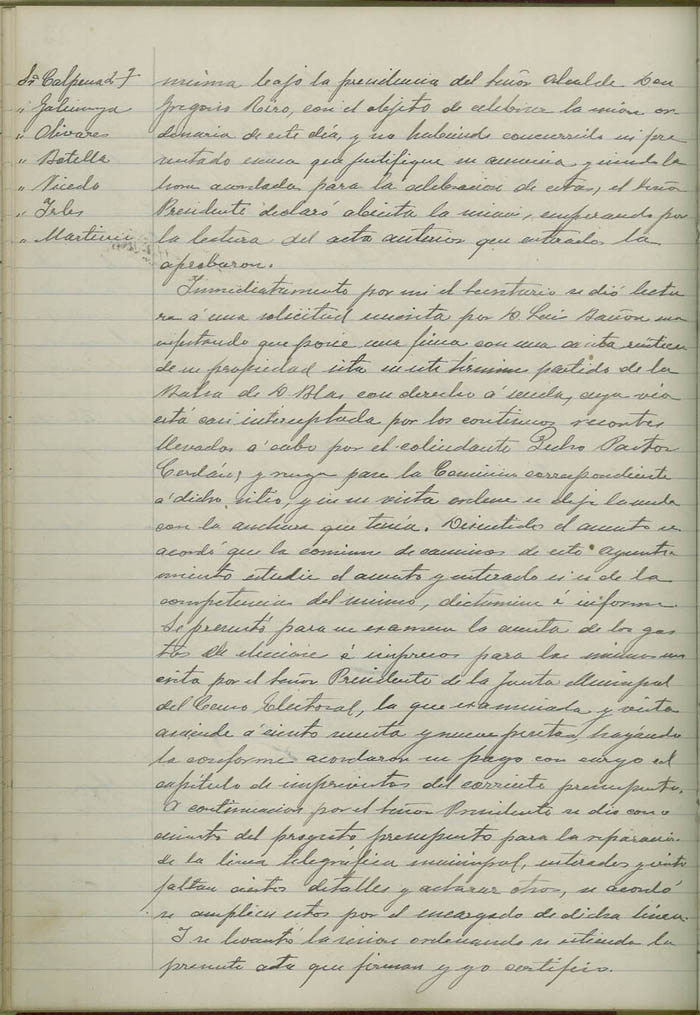 Sr. Calpena
" Galiunga
" Olivares
" Botella
" Vicedo
" Irles
" Martinez
misma bajo la presidencia del Señor Alcalde Don
Gregorio Rizo, con el objeto de celebrar la sesion or-
denaria de este dia, y no habiendo concurrido ni pre-
sentado escusa que justifique su ausencia y siendo la
hora acordada para la celebracion de estas, el Señor
Presidente declaró abierta la sesion, empezando por
la lectura del acta anterior que enterados la
aprobaron.
Inmediatamente por mi el Secretario se dió lectu-
ra á una solicitud suscrita por D. Luis
que posee una finca con una casita rústica
de su propiedad sita en este término partido de la
Balsa de D. Blas con derecho á senda, cuya via
está casi interruptada por los continuos recortes
llevados á cabo por el colindante Pedro Pastor
Cerdán; y ruega pase la Comision correspondiente
á dicho sitio, y en su vista ordene se deje la senda
con la anchura que tenia. Discutido el asunto se
acordó que la comision de caminos de este Ayunta-
miento estudie el asunto y enterado si es de la
competencia del mismo, dictamine é informe.
Se presentó para su examen la cuenta de los gas-
tos de eleccion é impresos para las mismas sus-
crita por el Señor Presidente de la Junta Municipal
del Censo Electoral, la que examinada y vista
asciende á ciento y nueve pesetas, hayando
la conforme acordaron su pago con cargo al
capitulo de imprevistos del corriente presupuesto.
A continuacion por el Señor Presidente se dió cono-
cimiento del proyecto presupuesto para la reparacion
de la linea telegráfica municipal, enterados y
faltan ciertos detalles y aclarar otros, se acordó
se amplien estos por el encargado de dicha linea.
Y se levantó la sesion ordenando se estienda la
presente acta que firman y yo certifico.